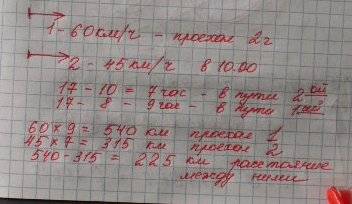 1 - 60 км/ч - проехал 2 г
2 - 45 км/ч в 10.00
17 - 10 = 7 час - в пути 2 ой
17 - 8 - 9 час - в пути 1 ый
60 × 9 = 540 км проехал 1
45 × 7 = 315 км проехал 2
540 - 315 = 225 км расстояние
между ними